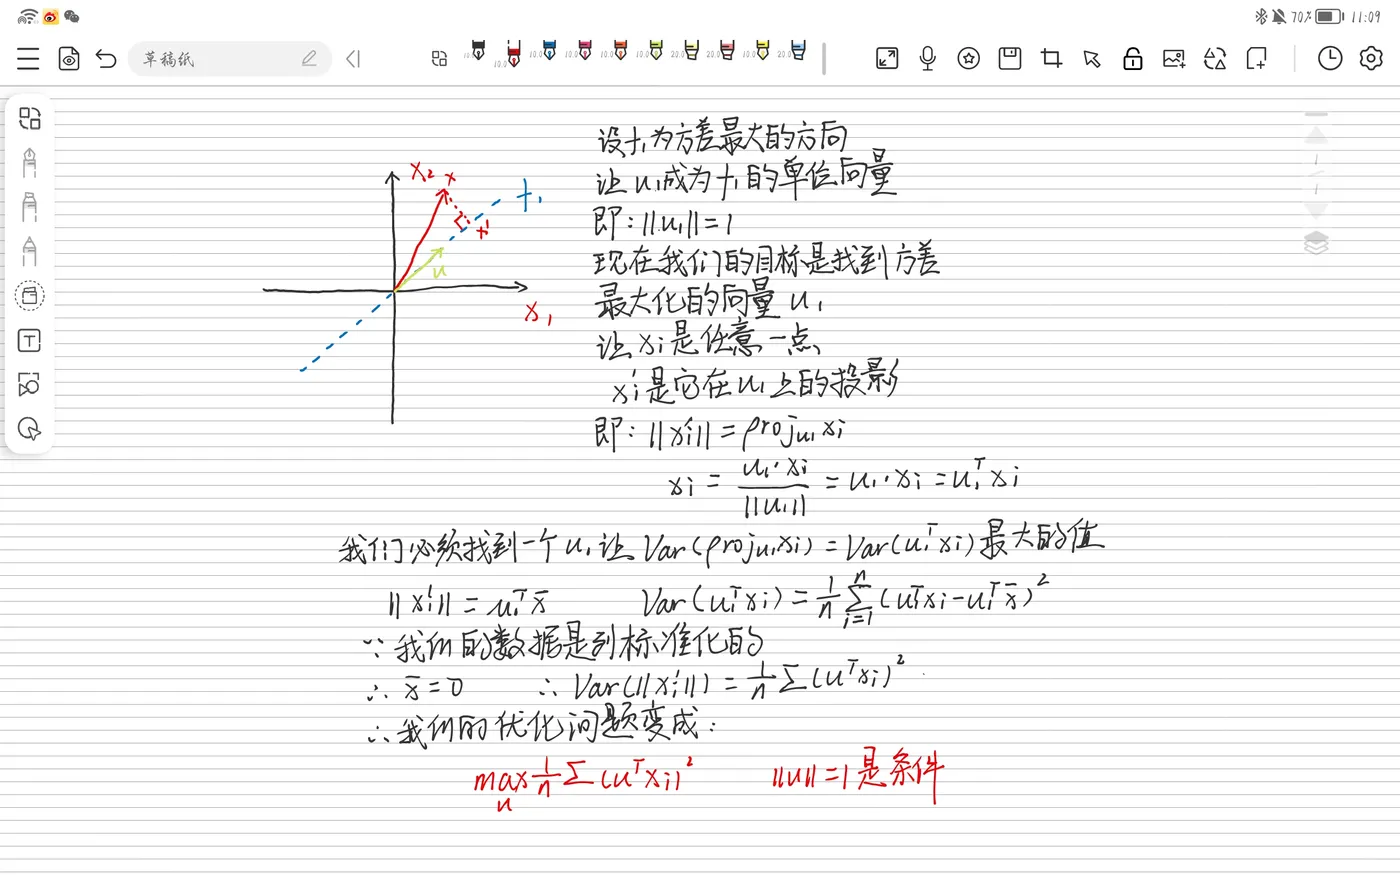 70% 11:09
草稿纸
10.0 10.0 10.0 10.0 10.0 20.0 20.0 10.0 20.0
x₂ x
f₁
x'
u
x₁
设f₁为方差最大的方向
让u₁成为f₁的单位向量
即:||u₁||=1
现在我们的目标是找到方差
最大化的向量u₁
让xi是任意一点
xi'是它在u₁上的投影
即:||xi'||=proju₁xi
xi = u₁·xi / ||u₁|| = u₁·xi = u₁ᵀxi
我们必须找到一个u₁让 Var(proju₁xi)=Var(u₁ᵀxi)最大的值
||xi'||=u₁ᵀx̄ Var(u₁ᵀxi)=1/n Σ_{i=1}^{n} (u₁ᵀxi-u₁ᵀx̄)²
∵我们的数据是列标准化的
∴x̄=0 ∴Var(||xi'||)=1/n Σ(uᵀxi)²
∴我们的优化问题变成:
max 1/n Σ(uᵀxi)² ||u||=1是条件
u